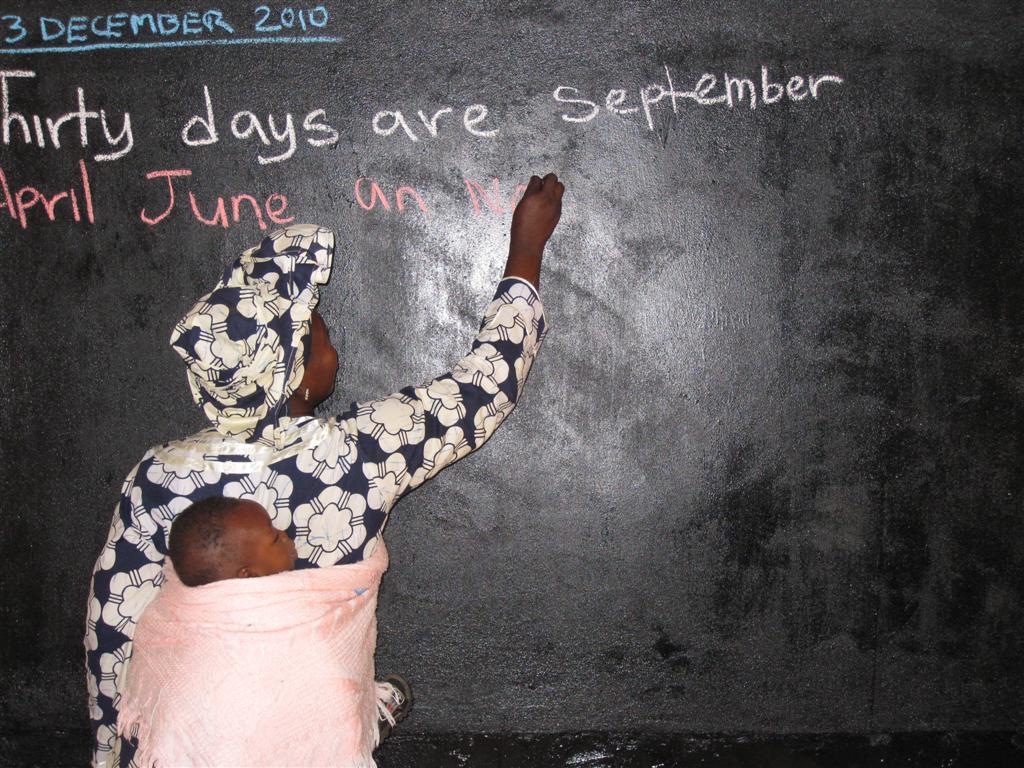 3 DECEMBER 2010
Thirty days are September
April June an No